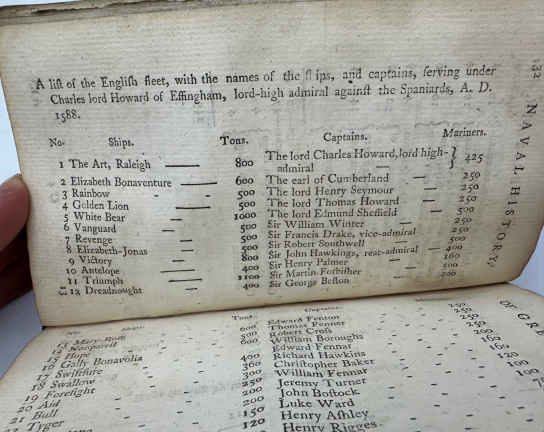 132 NAVAL HISTORY,
A liſt of the Engliſh fleet, with the names of the ſhips, and captains, ſerving under
Charles lord Howard of Effingham, lord-high admiral againſt the Spaniards, A. D.
1588.
No. Ships. Tons. Captains. Mariners.
1 The Art, Raleigh 800 The lord Charles Howard, lord high-admiral } 425
2 Elizabeth Bonaventure 600 The earl of Cumberland 250
3 Rainbow 500 The lord Henry Seymour 250
4 Golden Lion 500 The lord Thomas Howard 250
5 White Bear 1000 The lord Edmund Sheffield 500
6 Vanguard 500 Sir William Winter 250
7 Revenge 500 Sir Francis Drake, vice-admiral 250
8 Elizabeth-Jonas 500 Sir Robert Southwell 500
9 Victory 800 Sir John Hawkings, rear-admiral 400
10 Antelope 400 Sir Henry Palmer 160
11 Triumph 1100 Sir Martin Forbiſher
12 Dreadnought 400 Sir George Beſton 200
OF GRE
No. Ships. Tons. Captains.
13 Mary-Roſe 600 Edward Fenton 250
14 Nonpareil 500 Thomas Fennar 250
15 Hope 600 Robert Croſs 250
16 Gally Bonavolia William Boroughs
17 Swiftſure 400 Edward Fennar 200
18 Swallow 360 Richard Hawkins 160
19 Foreſight 300 Chriſtopher Baker 160
20 Aid 250 William Fennar 120
21 Bull 200 Jeremy Turner 100
22 Tyger 200 John Boſtock 100
150 Luke Ward
120 Henry Aſhley
Henry Rigges